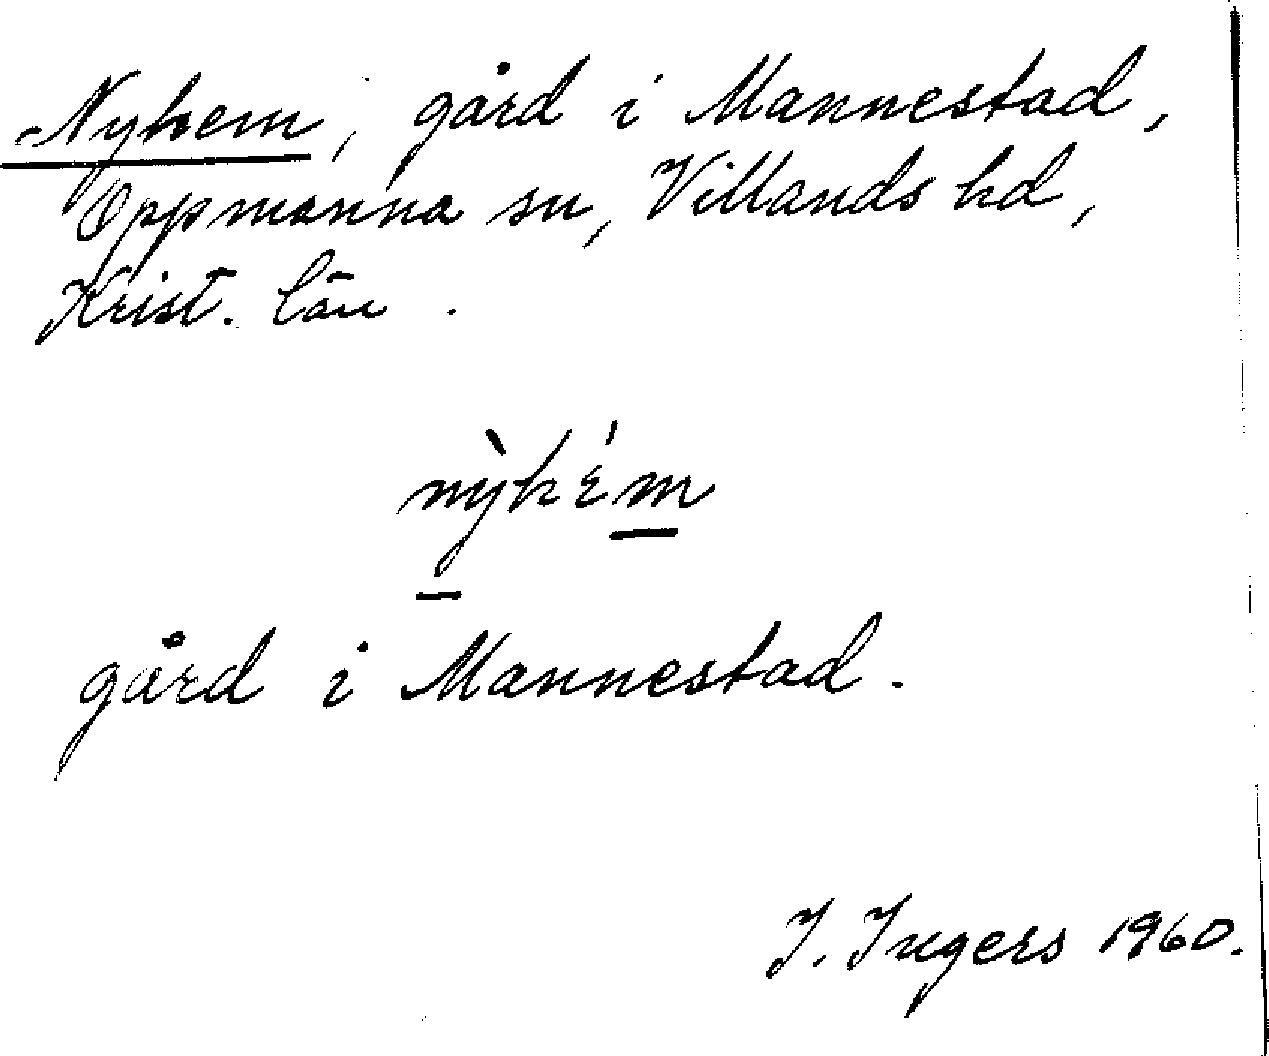 Nyhem, gård i Mannestad,
Oppmanna sn, Villands hd,
Krist. län.
nỳ̱hɛ́m̱
gård i Mannestad.
J. Ingers 1960.